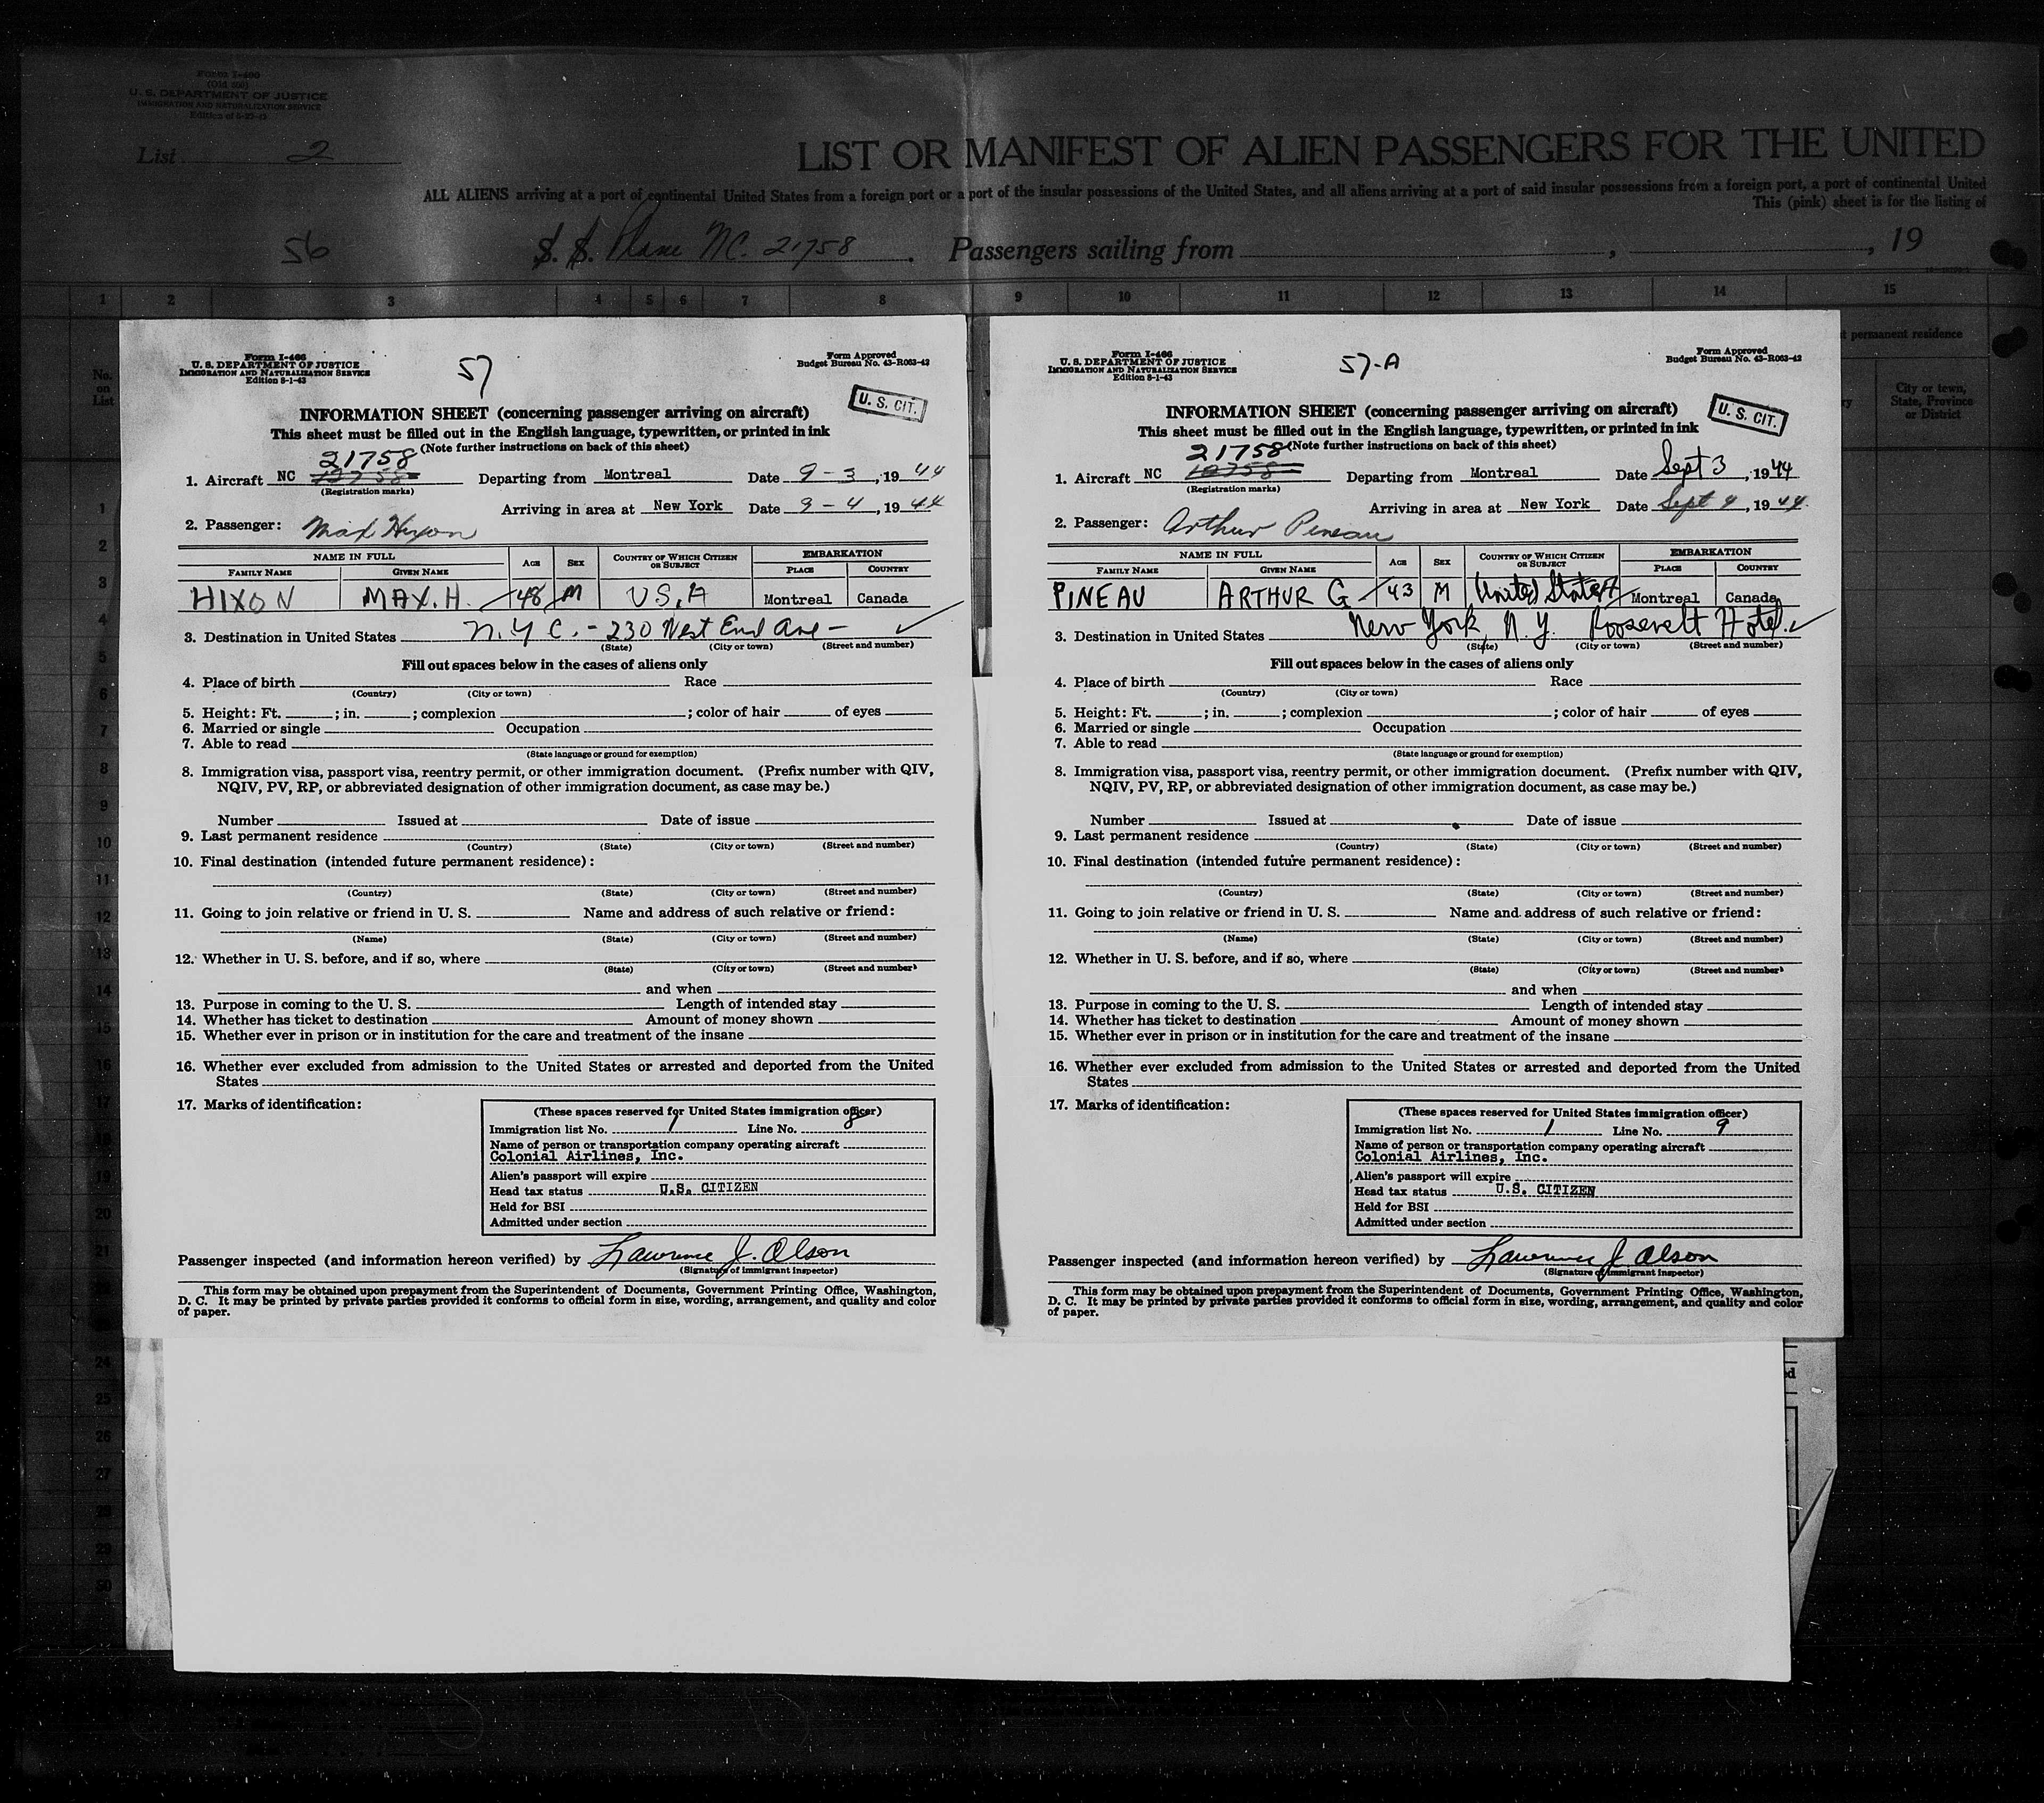 Form I-400
(Old 500)
U. S. DEPARTMENT OF JUSTICE
IMMIGRATION AND NATURALIZATION SERVICE
List 2
LIST OR MANIFEST OF ALIEN PASSENGERS FOR THE UNITED
ALL ALIENS arriving at a port of continental United States from a foreign port or a port of the insular possessions of the United States, and all aliens arriving at a port of said insular possessions from a foreign port, a port of continental United
This (pink) sheet is for the listing of
56 S. S. Plane NC. 21758. Passengers sailing from , , 19
1 2 3 4 5 6 7 8 9 10 11 12 13 14 15
t permanent residence
No. on List
City or town, State, Province or District
Form I-466
U. S. DEPARTMENT OF JUSTICE
IMMIGRATION AND NATURALIZATION SERVICE
Edition 8-1-43
57
Form Approved
Budget Bureau No. 43-R063-42
U. S. CIT.
INFORMATION SHEET (concerning passenger arriving on aircraft)
This sheet must be filled out in the English language, typewritten, or printed in ink
(Note further instructions on back of this sheet)
21758
1. Aircraft NC Departing from Montreal Date 9-3, 1944
(Registration marks)
Arriving in area at New York Date 9-4, 1944
2. Passenger: Max Hixon
NAME IN FULL AGE SEX COUNTRY OF WHICH CITIZEN OR SUBJECT EMBARKATION
FAMILY NAME GIVEN NAME PLACE COUNTRY
HIXON MAX. H. 48 M U S. A Montreal Canada
3. Destination in United States N. Y C. - 230 West End Ave -
(State) (City or town) (Street and number)
Fill out spaces below in the cases of aliens only
4. Place of birth Race
(Country) (City or town)
5. Height: Ft. ; in. ; complexion ; color of hair of eyes
6. Married or single Occupation
7. Able to read
(State language or ground for exemption)
8. Immigration visa, passport visa, reentry permit, or other immigration document. (Prefix number with QIV,
NQIV, PV, RP, or abbreviated designation of other immigration document, as case may be.)
Number Issued at Date of issue
9. Last permanent residence
(Country) (State) (City or town) (Street and number)
10. Final destination (intended future permanent residence):
(Country) (State) (City or town) (Street and number)
11. Going to join relative or friend in U. S. Name and address of such relative or friend:
(Name) (State) (City or town) (Street and number)
12. Whether in U. S. before, and if so, where
(State) (City or town) (Street and number)
and when
13. Purpose in coming to the U. S. Length of intended stay
14. Whether has ticket to destination Amount of money shown
15. Whether ever in prison or in institution for the care and treatment of the insane
16. Whether ever excluded from admission to the United States or arrested and deported from the United
States
17. Marks of identification:
(These spaces reserved for United States immigration officer)
Immigration list No. 1 Line No. 8
Name of person or transportation company operating aircraft
Colonial Airlines, Inc.
Alien's passport will expire
Head tax status U.S. CITIZEN
Held for BSI
Admitted under section
Passenger inspected (and information hereon verified) by Lawrence J. Olson
(Signature of immigrant inspector)
This form may be obtained upon prepayment from the Superintendent of Documents, Government Printing Office, Washington,
D. C. It may be printed by private parties provided it conforms to official form in size, wording, arrangement, and quality and color
of paper.
Form I-466
U. S. DEPARTMENT OF JUSTICE
IMMIGRATION AND NATURALIZATION SERVICE
Edition 8-1-43
57-A
Form Approved
Budget Bureau No. 43-R063-42
U. S. CIT.
INFORMATION SHEET (concerning passenger arriving on aircraft)
This sheet must be filled out in the English language, typewritten, or printed in ink
(Note further instructions on back of this sheet)
21758
1. Aircraft NC Departing from Montreal Date Sept 3, 1944
(Registration marks)
Arriving in area at New York Date Sept 4, 1944.
2. Passenger: Arthur Pineau
NAME IN FULL AGE SEX COUNTRY OF WHICH CITIZEN OR SUBJECT EMBARKATION
FAMILY NAME GIVEN NAME PLACE COUNTRY
PINEAU ARTHUR G 43 M United States Montreal Canada
3. Destination in United States New York, N. Y. Roosevelt Hotel.
(State) (City or town) (Street and number)
Fill out spaces below in the cases of aliens only
4. Place of birth Race
(Country) (City or town)
5. Height: Ft. ; in. ; complexion ; color of hair of eyes
6. Married or single Occupation
7. Able to read
(State language or ground for exemption)
8. Immigration visa, passport visa, reentry permit, or other immigration document. (Prefix number with QIV,
NQIV, PV, RP, or abbreviated designation of other immigration document, as case may be.)
Number Issued at Date of issue
9. Last permanent residence
(Country) (State) (City or town) (Street and number)
10. Final destination (intended future permanent residence):
(Country) (State) (City or town) (Street and number)
11. Going to join relative or friend in U. S. Name and address of such relative or friend:
(Name) (State) (City or town) (Street and number)
12. Whether in U. S. before, and if so, where
(State) (City or town) (Street and number)
and when
13. Purpose in coming to the U. S. Length of intended stay
14. Whether has ticket to destination Amount of money shown
15. Whether ever in prison or in institution for the care and treatment of the insane
16. Whether ever excluded from admission to the United States or arrested and deported from the United
States
17. Marks of identification:
(These spaces reserved for United States immigration officer)
Immigration list No. 1 Line No. 9
Name of person or transportation company operating aircraft
Colonial Airlines, Inc.
Alien's passport will expire
Head tax status U.S. CITIZEN
Held for BSI
Admitted under section
Passenger inspected (and information hereon verified) by Lawrence J Olson
(Signature of immigrant inspector)
This form may be obtained upon prepayment from the Superintendent of Documents, Government Printing Office, Washington,
D. C. It may be printed by private parties provided it conforms to official form in size, wording, arrangement, and quality and color
of paper.